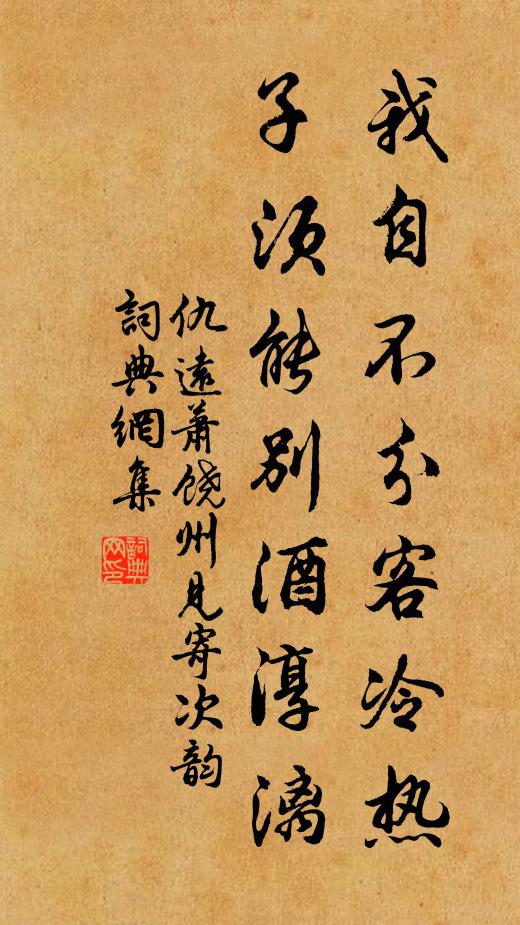 我自不分客冷热
子须能别酒淳漓
仇遠萧饶州见寄次韵
詞典網集
詞典网印